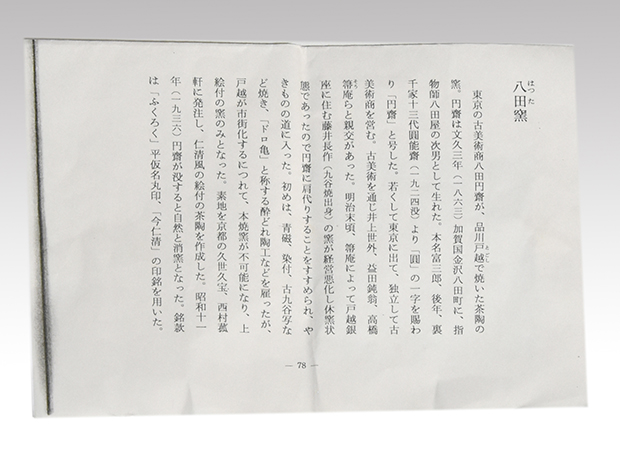 八田窯
はつた
東京の古美術商八田円齋が、品川戸越で焼いた茶陶の
窯。円齋は文久三年(一八六三)加賀国金沢八田町に、指
物師八田屋の次男として生れた。本名富三郎、後年、裏
千家十三代圓能齋(一九二四役)より「圓」の一字を賜わ
り「円齋」と号した。若くして東京に出て、独立して古
美術商を営む。古美術を通じ井上世外、益田鈍翁、高橋
箒庵らと親交があった。明治末頃、箒庵によって戸越銀
座に住む藤井長作(九谷焼出身)の窯が経営悪化し休窯状
態であったので円齋に肩代りすることをすすめられ、や
きものの道に入った。初めは、青磁、染付、古九谷写な
ど焼き、「ドロ亀」と称する酔どれ陶工などを雇ったが、
戸越が市街化するにつれて、本焼窯が不可能になり、上
絵付の窯のみとなった。素地を京都の久世久宝、西村菰
軒に発注し、仁清風の絵付の茶陶を作成した。昭和十一
年(一九三六)円齋が没すると自然と消窯となった。銘款
は「ふくろく」平仮名丸印、「今仁清」の印銘を用いた。
— 78 —